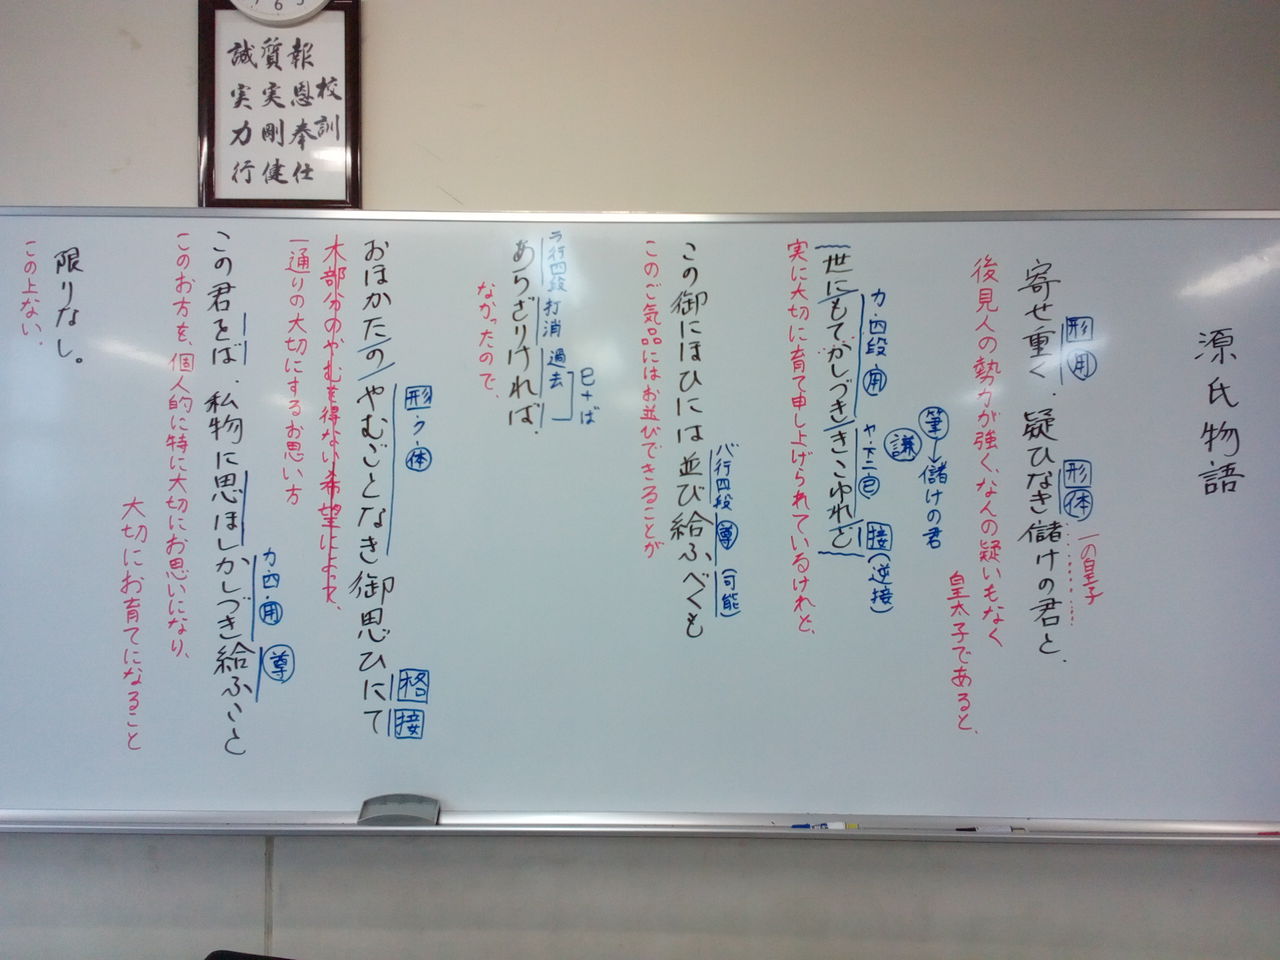 校訓
報恩奉仕
質実剛健
誠実力行
源氏物語
一の皇子
形 用
形 体
寄せ重く、疑ひなき儲けの君と、
後見人の勢力が強く、なんの疑いもなく
皇太子であると、
筆→儲けの君
謙
カ・四段 用
ヤ・下二 已
接(逆接)
世にもてかしづききこゆれど
実に大切に育て申し上げられているけれど、
バ行四段 尊 (可能)
この御にほひには並び給ふべくも
このご気品にはお並びできることが
已+ば
ラ行四段 打消 過去
あらざりければ、
なかったので、
形・ク・体
格 接
おほかたのやむごとなき御思ひにて
大部分のやむを得ない希望によって、
一通りの大切にするお思い方
カ・四・用 尊
この君をば、私物に思ほしかしづき給ふこと
このお方を、個人的に特に大切にお思いになり、
大切にお育てになること
限りなし。
この上ない。